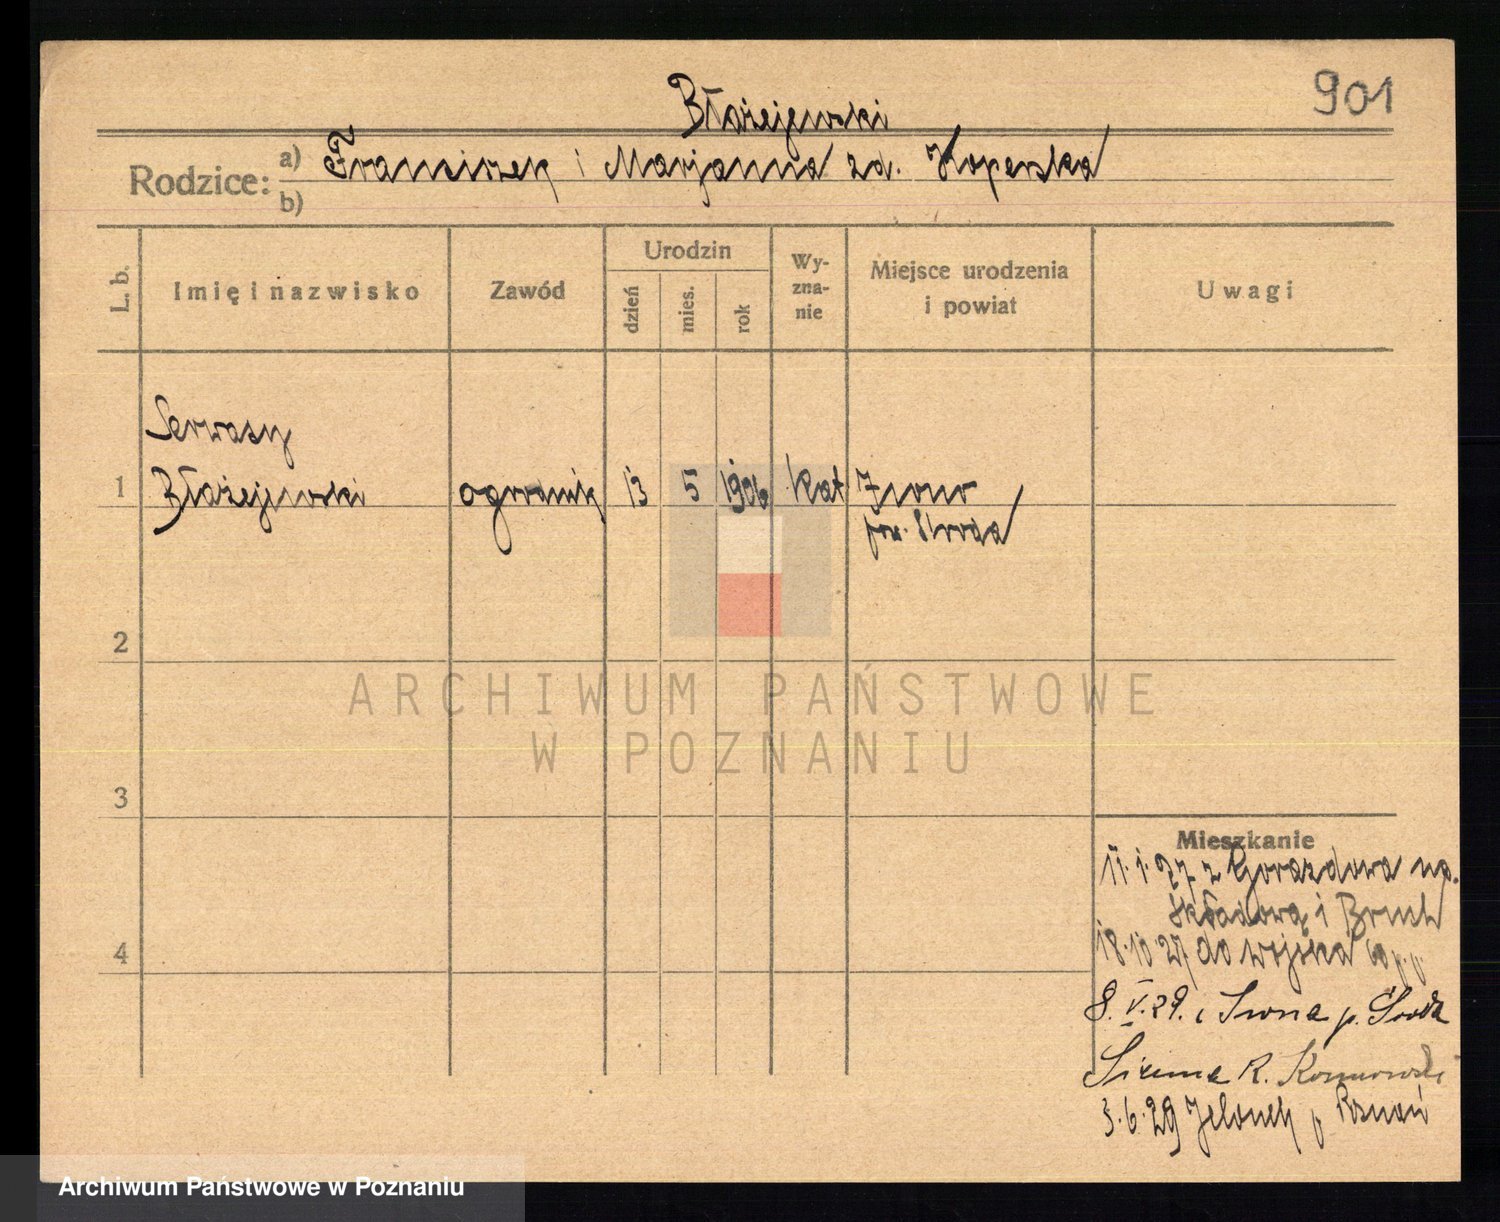 901
Błażejewski
Rodzice: a) Franciszek i Marjanna zd. Koperska
b)
L. b. Imię i nazwisko Zawód Urodzin dzień mies. rok Wy-zna-nie Miejsce urodzenia i powiat Uwagi
Serwasy
1 Błażejewski ogrodnik 13 5 1906 kat Iwno
pow. Środa
2
ARCHIWUM PAŃSTWOWE
W POZNANIU
3
Mieszkanie
11.1.27 z Gorazdowa np.
Składową i
4 18.10.27 do wojska p.p.
8.V.29. z Iwna p. Środa
R.
3.6.29 Jelonek p Poznań
Archiwum Państwowe w Poznaniu